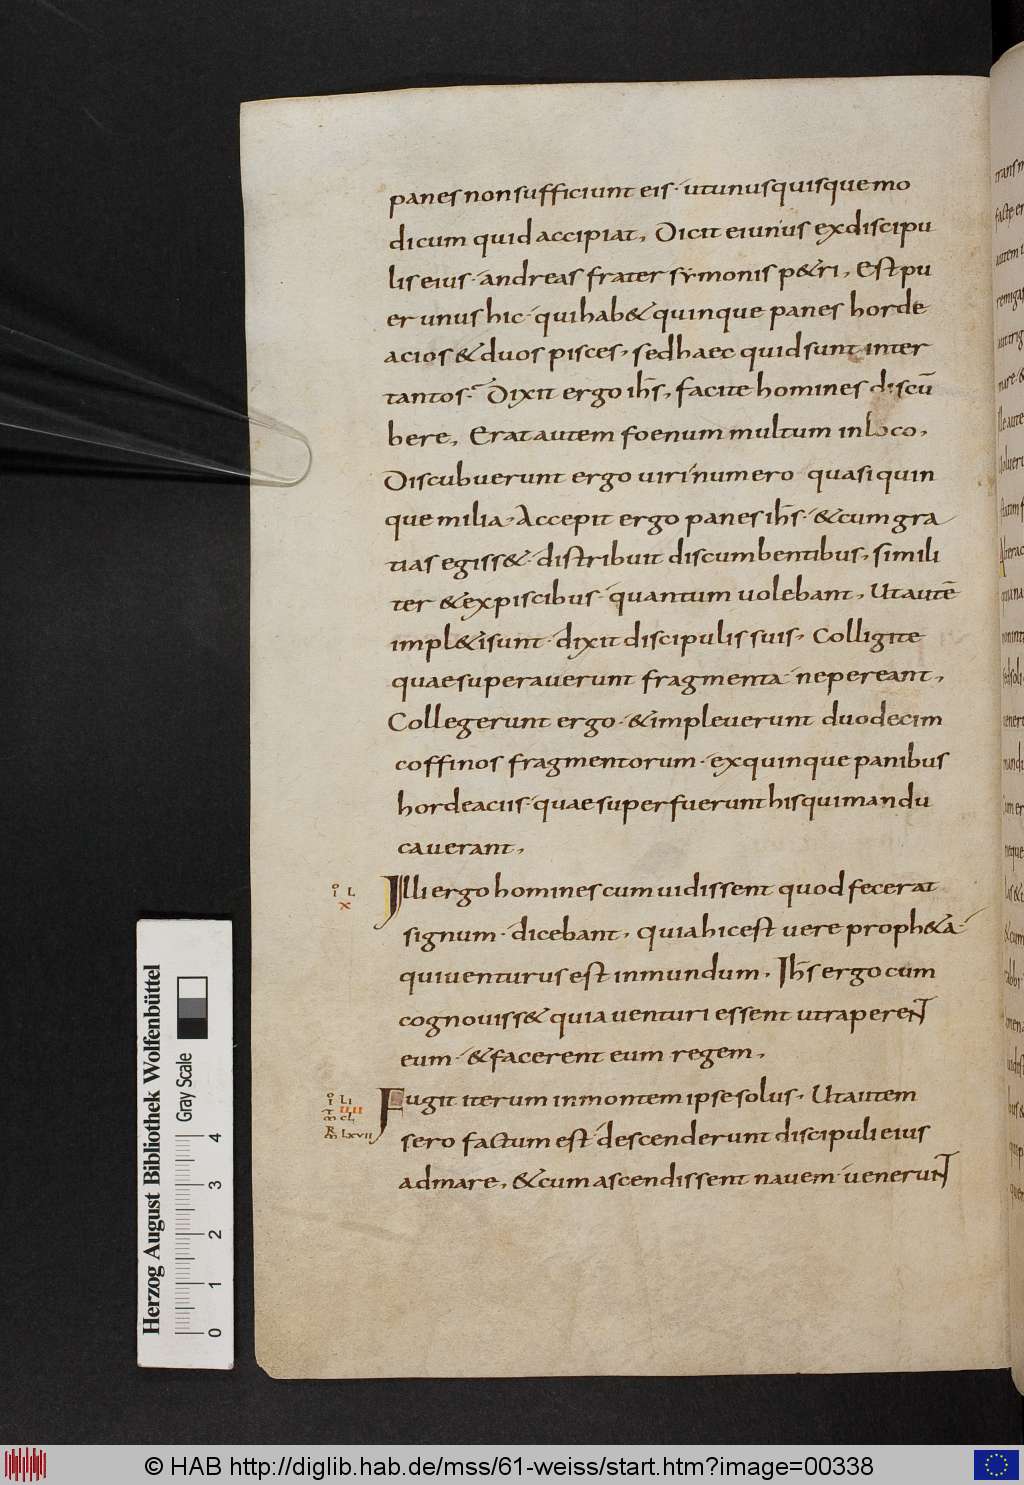 panes non sufficiunt eis· ut unusquisque mo
dicum quid accipiat, Dicit ei unus ex discipu
lis eius· andreas frater symonis p&ri, Est pu
er unus hic· qui hab& quinque panes horde
acios & duos pisces, sed haec quid sunt inter
tantos? Dixit ergo ihs̄, facite homines discū
bere, Erat autem foenum multum in loco,
Discubuerunt ergo uiri numero quasi quin
que milia, Accepit ergo panes ihs̄· & cum gra
tias egiss& distribuit discumbentibus, simili
ter & ex piscibus· quantum uolebant, Ut autē
impl&i sunt· dixit discipulis suis, Colligite
quae superauerunt fragmenta ne pereant,
Collegerunt ergo· & impleuerunt duodecim
coffinos fragmentorum· ex quinque panibus
hordeaciis· quae superfuerunt his qui mandu
cauerant,
io L
x
Illi ergo homines cum uidissent quod fecerat
signum· dicebant, quia hic est uere proph&a·
qui uenturus est in mundum, Ihs̄ ergo cum
cognouiss& quia uenturi essent ut raperent
eum· & facerent eum regem,
io LI
IIII
m̄ CL
m̄r LXVII
Fugit iterum in montem ipse solus, Ut autem
sero factum est descenderunt discipuli eius
ad mare, & cum ascendissent nauem· uenerunt
trans m
Herzog August Bibliothek Wolfenbüttel
Gray Scale
0 1 2 3 4
© HAB http://diglib.hab.de/mss/61-weiss/start.htm?image=00338